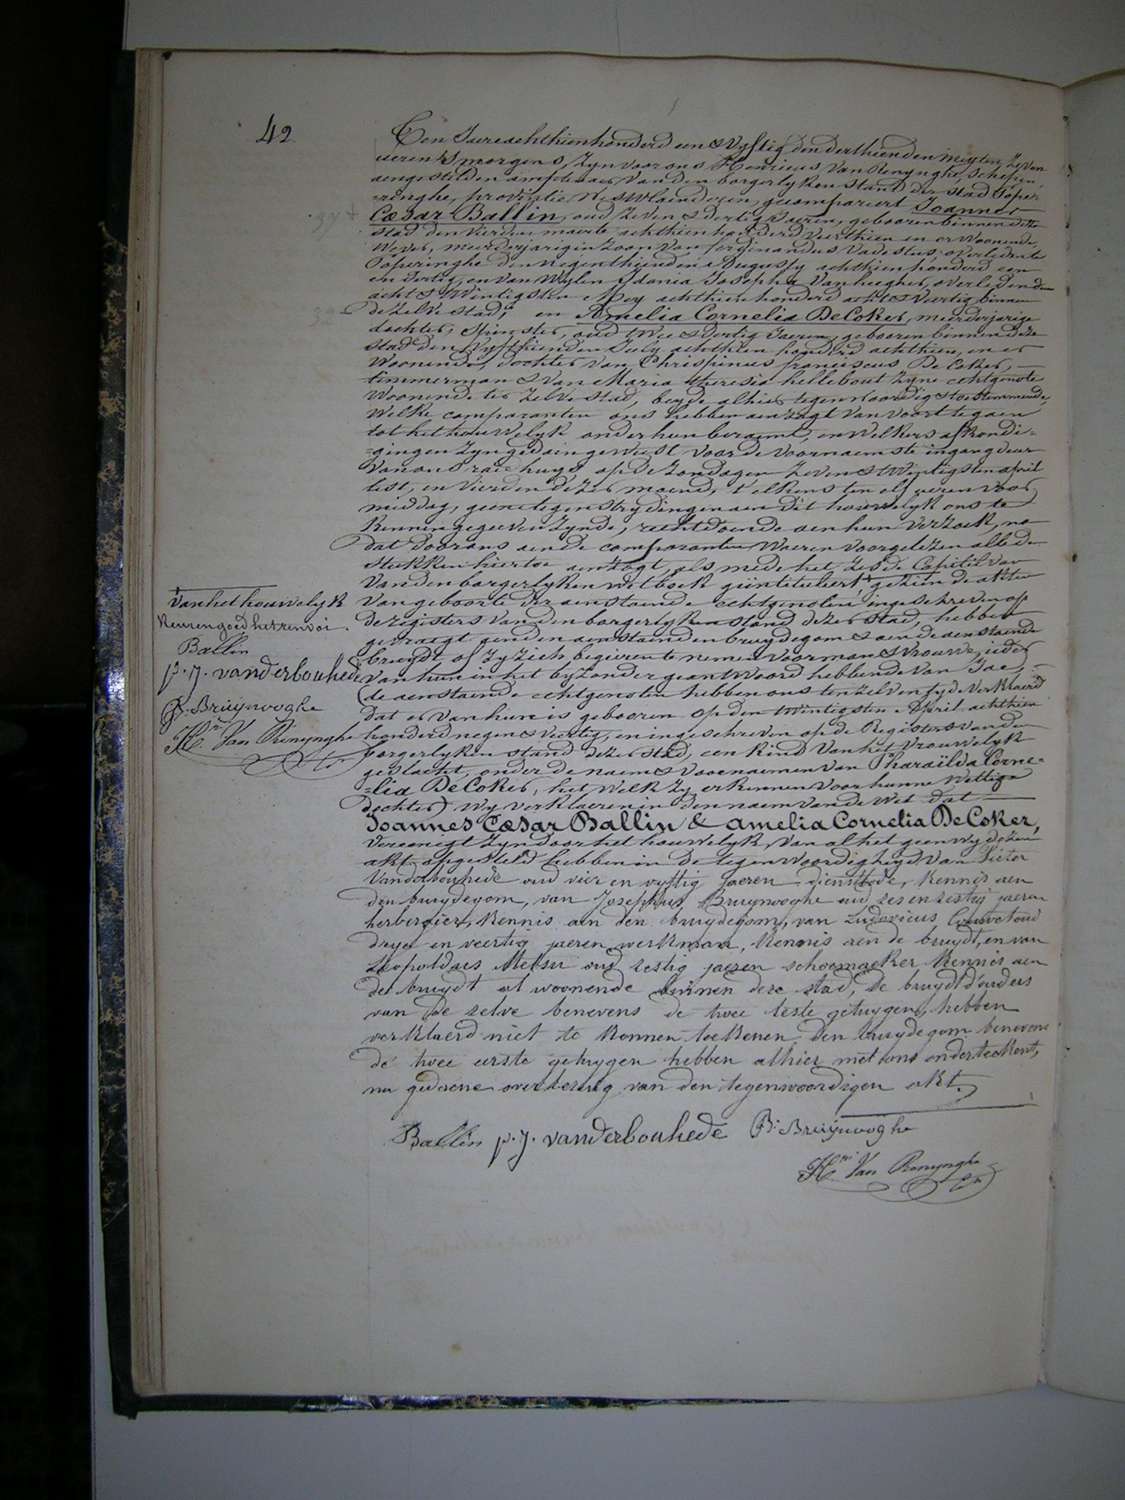 42
Ten Jaere achthien honderd een & vyftig den derthienden meye ten zeven
ueren 's morgens, zyn voor ons Henricus Van Renynghe, Schepen,
aengestelden amptenaer van den borgerlyken stand der stad Poper-
-ringhe, provintie Westvlaenderen, gecompareert Joannes
Cæsar Ballin, oud zeven & dertig Jaeren, gebooren binnen deze
stad den vierden maerte achthien honderd Veerthien en er Woonende,
Wever, meerderjarigen Zoon van ferdinandus Vadestus, overleden te
Poperinghe den negenthienden Augusty achthien honderd een
en dertig, en van Wylen Idonia Josepha Vanheeghe, overleden den
acht & twintigsten Mey achthien honderd acht & veertig binnen
de zelve stad, en Amelia Cornelia De Coker, meerderjarige
dochter, Spinster, oud twee & dertig Jaeren, gebooren binnen deze
stad den Vyfthienden July achthien honderd achthien, en er
Woonende, dochter van Chrispinus franciscus De Coker,
timmerman & van Maria theresia hellebout Zyne echtgenote
Woonende ter Zelve stad, beyde alhier tegenwoordig & toestemmende,
Welke comparanten ons hebben aenzogt van voort te gaen
tot het houwelyk onder hun beraemt, en Welkers afkondi-
-gingen Zyn gedaen geweest voor de voornaemste ingang deur
Van ons raedhuys op de Zondagen Zeven & twintigsten april
lest, en vierden dezer maend, t'elkens ten elf ueren voor
middag, geene tegenstrydingen aen dit houwelyk ons te
Kennen gegeeven Zynde, rechtdoende aen hun Verzoek, na
dat door ons aen de comparanten Waeren voorgelezen alle de
stukken hiertoe aenzogt, als mede het Zesde Capitel van
Van den borgerlyken Wetboek geïntituleert, gezien de akten
van geboorte der aenstaende echtgenoten ingeschreven op
de registers van den borgerlyken stand dezer stad, hebben
gevraegt aen den aenstaenden bruydegom & aen de aenstaende
bruydt of Zy Zich begeeren te nemen voor man & Vrouwe, ieder
van hun in het byzonder geantwoord hebbende van Jae,
(de aenstaende echtgenoten hebben ons ten zelven tyde verklaerd
dat er van hun is gebooren op den twintigsten April achthien
honderd negen & veertig, en ingeschreven op de Registers van den
borgerlyken stand dezer stad, een kind van het vrouwelyk
geslacht, onder de naem & voornaemen van Pharaïlda Corne-
-lia De Coker, het welk Zy erkennen voor hunne wettige
dochter) Wy verklaeren in den naem van de Wet dat
Joannes Cæsar Ballin & Amelia Cornelia De Coker,
vereenigt Zyn door het houwelyk, van al het geen wy dezen
akt opgesteld hebben in de tegenwoordigheyd van Pieter
Vanderbouhede oud vier en vyftig jaeren dienstbode, kennis aen
den bruydegom, van Josephus Bruynooghe oud zes en zestig jaeren
herbergier, kennis aen den bruydegom, van Ludovicus oud
drye en veertig jaeren werkman, kennis aen de bruydt, en van
Leopoldus oud zestig jaeren schoenmaeker kennis aen
de bruydt al woonende binnen deze stad, de bruydt d'ouders
van de zelve benevens de twee leste getuygen, hebben
verklaerd niet te konnen teekenen, den bruydegom benevens
de twee eerste getuygen hebben alhier met ons onderteekent,
na gedaene overlezing van den tegenwoordigen akt.
Ballin p. J. vanderbouhede B. Bruynooghe
Hri Van Renynghe
Van het houwelyk
Keuren goed het renvoi.
Ballin
p. J. vanderbouhede
B. Bruynooghe
Hri Van Renynghe